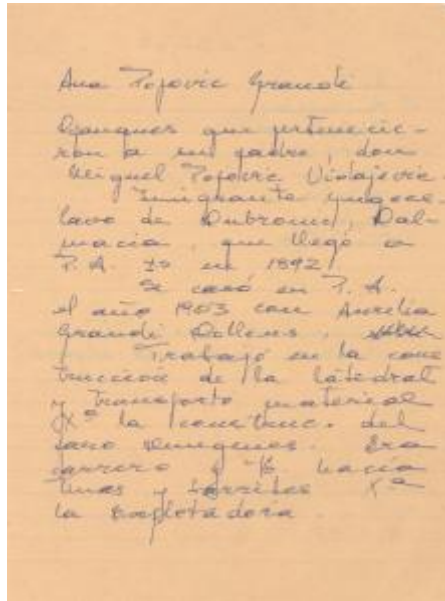 Ana Popovic Grandi
que pertenecie-
ron a mi padre, don
Miguel Popovic
Inmigrante yugoes-
lavo de Dubrovnic, Dal-
macia, que llegó a
P. A. en 1892
Se casó en P. A.
el año 1903 con Aurelia
Grandi
Trabajó en la cons
trucción de la Catedral
y transportó material
Xª la construc. del
faro Era
carrero y hacía
tinas y barriles Xª
la Explotadora.